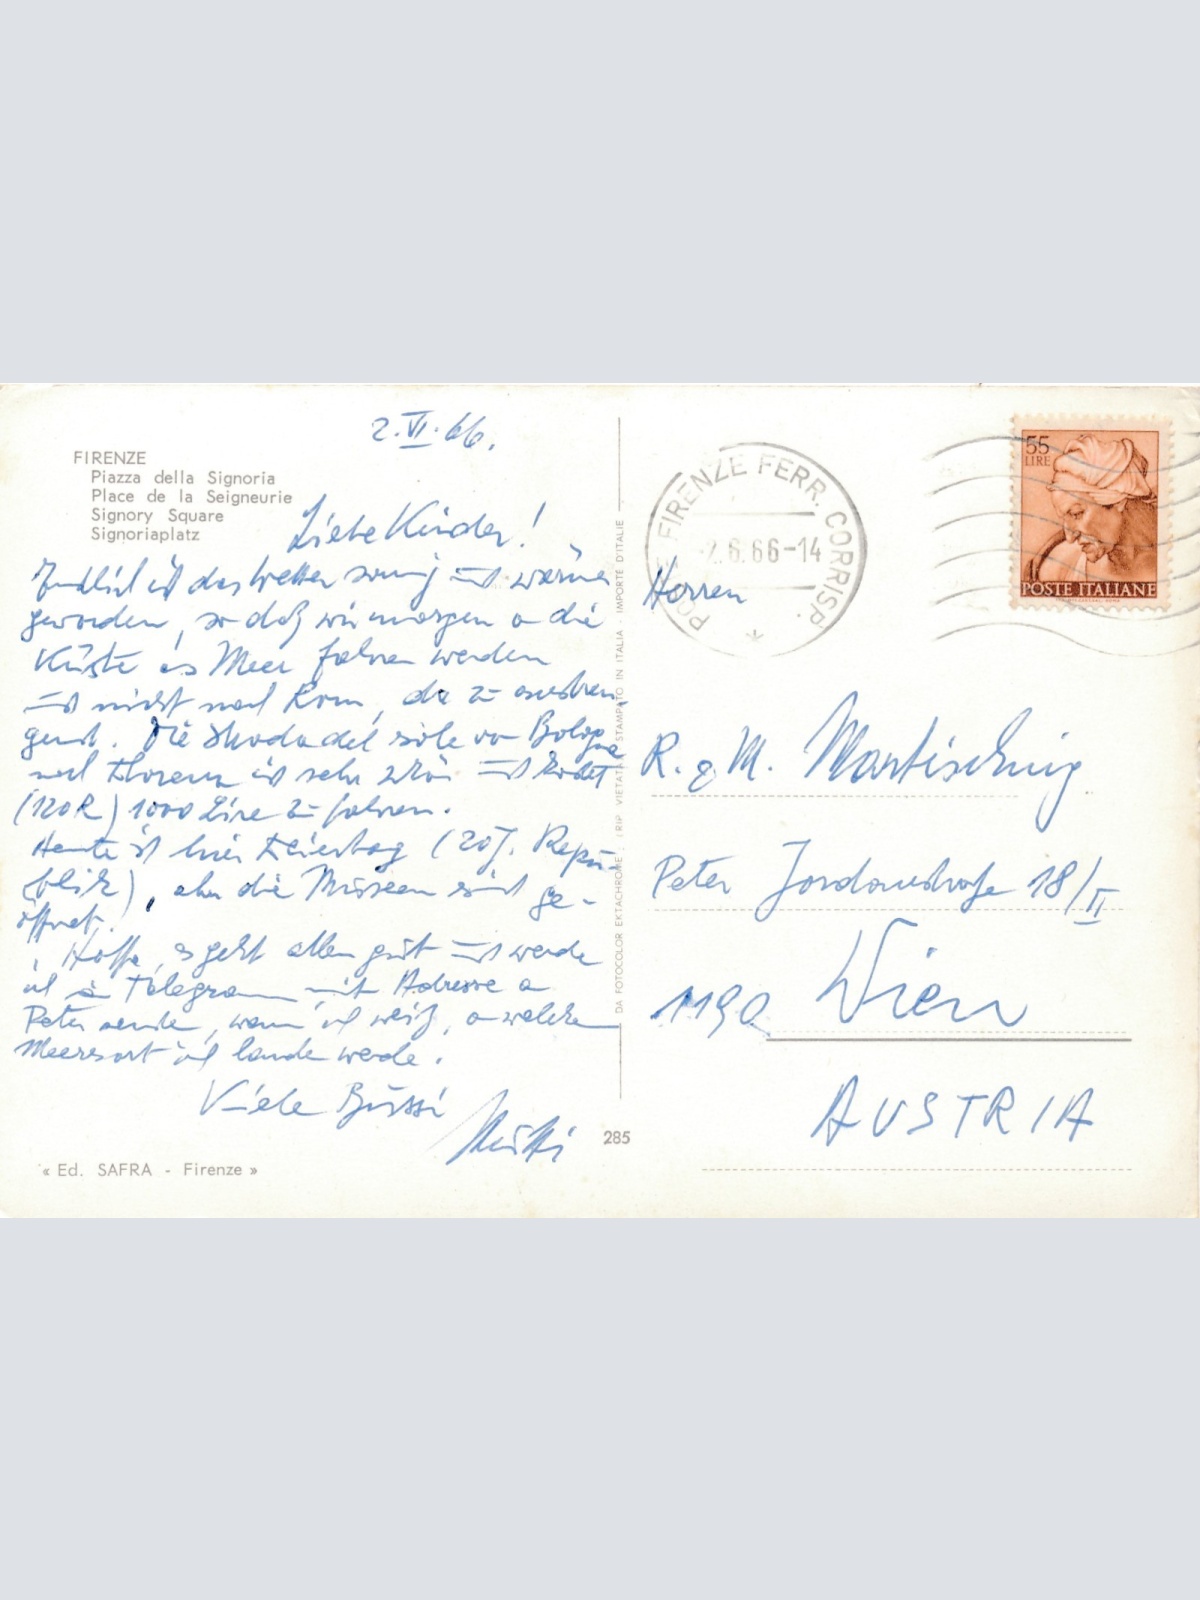 2.VI.66.
FIRENZE
Piazza della Signoria
Place de la Seigneurie
Signory Square
Signoriaplatz
Liebe Kinder!
Endlich ist das Wetter sonnig und wärmer
geworden, so daß wir morgen an die
Küste ans Meer fahren werden
und nicht nach Rom, da zu anstren
gend. Die Strada del sole von Bologna
nach Florenz ist sehr schön und kostet
(120 R) 1000 Lire zu fahren.
Heute ist hier Feiertag (20 J. Repu-
blik), aber die Museen sind ge-
öffnet.
Hoffe, es geht allen gut und werde
ich ein Telegramm mit Adresse an
Peter senden, wenn ich weiß, an welchem
Meeresort ich landen werde.
Viele Bussi
Mutti
« Ed. SAFRA - Firenze »
285
DA FOTOCOLOR EKTACHROME - RIP. VIETATA - STAMPATO IN ITALIA - IMPORTÉ D'ITALIE
FIRENZE FERR. CORRISP.
2.6.66-14
55
LIRE
POSTE ITALIANE
Herren
R. & M. Martisching
Peter Jordanstraße 18/II
1190 Wien
AUSTRIA